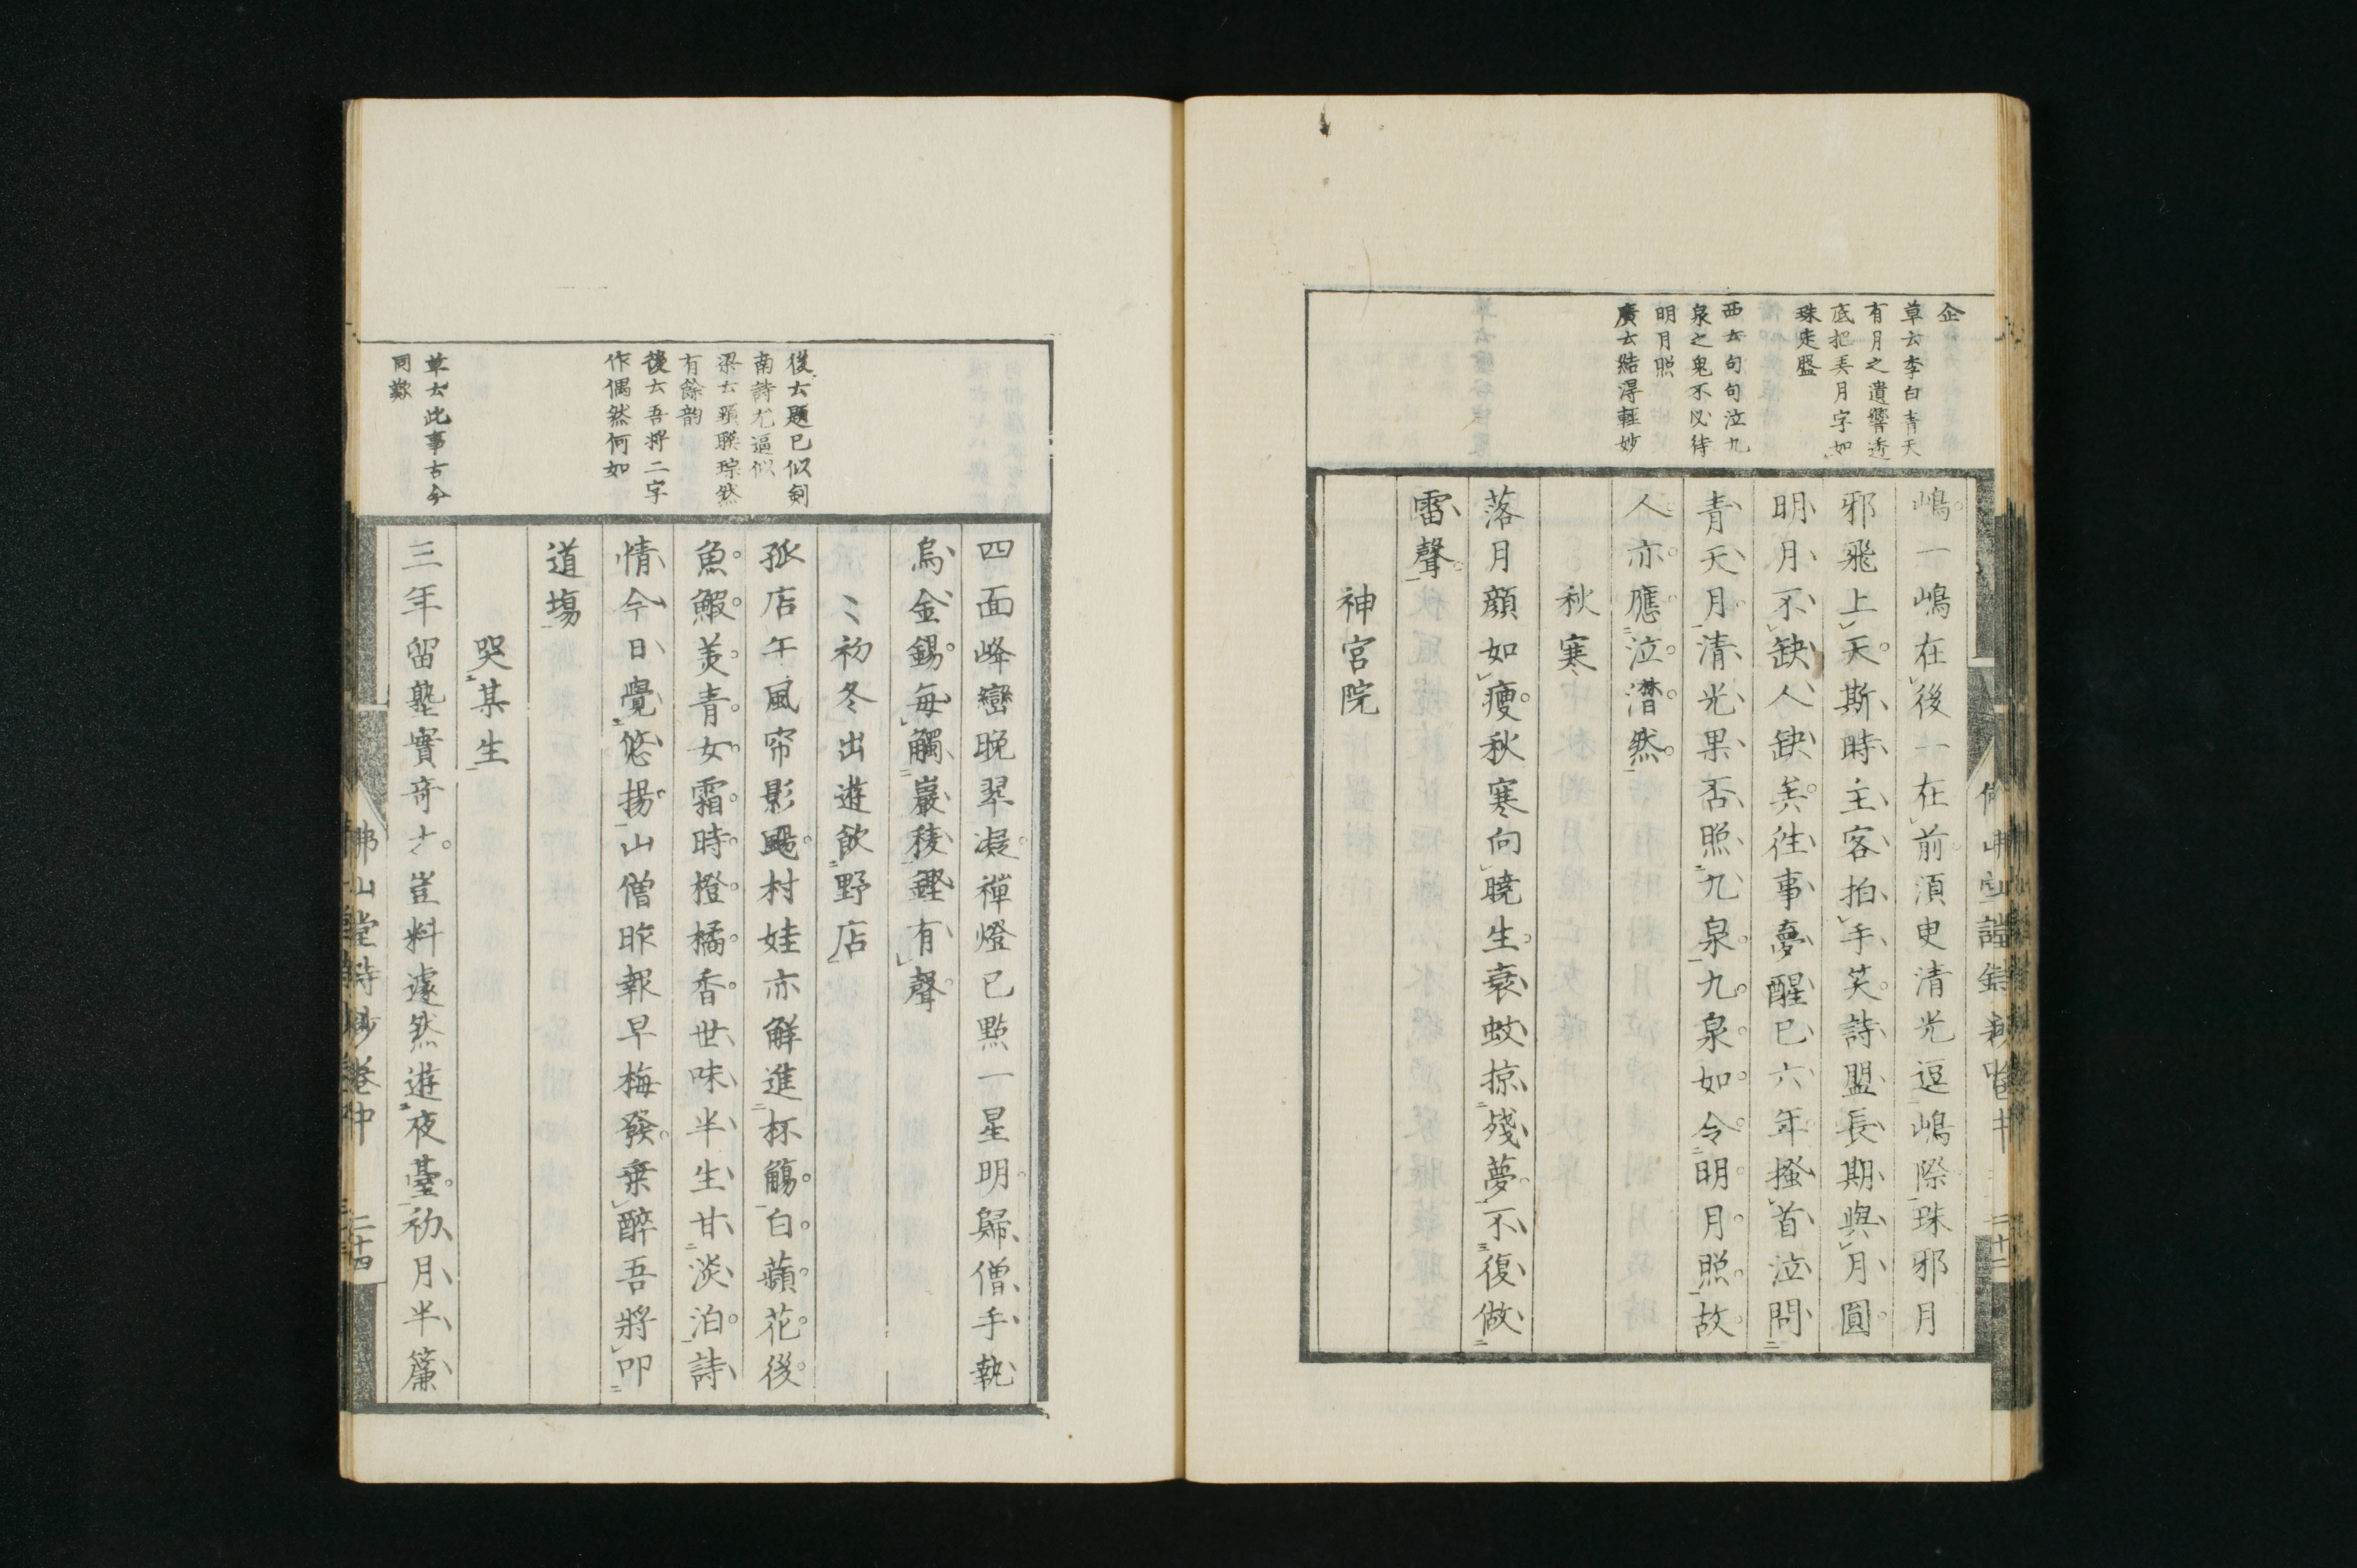 企
草云李白青天
有月之遺響透
底把弄月字如
珠走盤
西云句句泣九
泉之鬼不必待
明月照
廣云結得輕妙
嶋一嶋在後一在前須臾清光逗嶋際珠邪月
邪飛上天斯時主客拍手笑詩盟長期與月圓
明月不缺人缺矣往事夢醒已六年搔首泣問
青天月清光果否照九泉九泉如令明月照故
人亦應泣潸然
秋寒
落月顔如瘦秋寒向曉生衰蚊掠殘夢不復做
雷聲
神宮院
後云題已似劍
南詩尤逼似
梁云頸聯琮然
有餘韵
後云吾將二字
作偶然何如
草云此事古今
同歎
四面峰巒晚翠凝禪燈已點一星明歸僧手執
烏金錫每觸巖稜鏗有聲
〻初冬出遊飲野店
孤店午風帘影颺村娃亦解進杯觴白蘋花後
魚鰕美青女霜時橙橘香世味半生甘淡泊詩
情今日覺悠揚山僧昨報早梅發乗醉吾將叩
道場
哭某生
三年留塾實奇才豈料遽然遊夜臺初月半簾
佛山堂詩鈔卷中 二十四